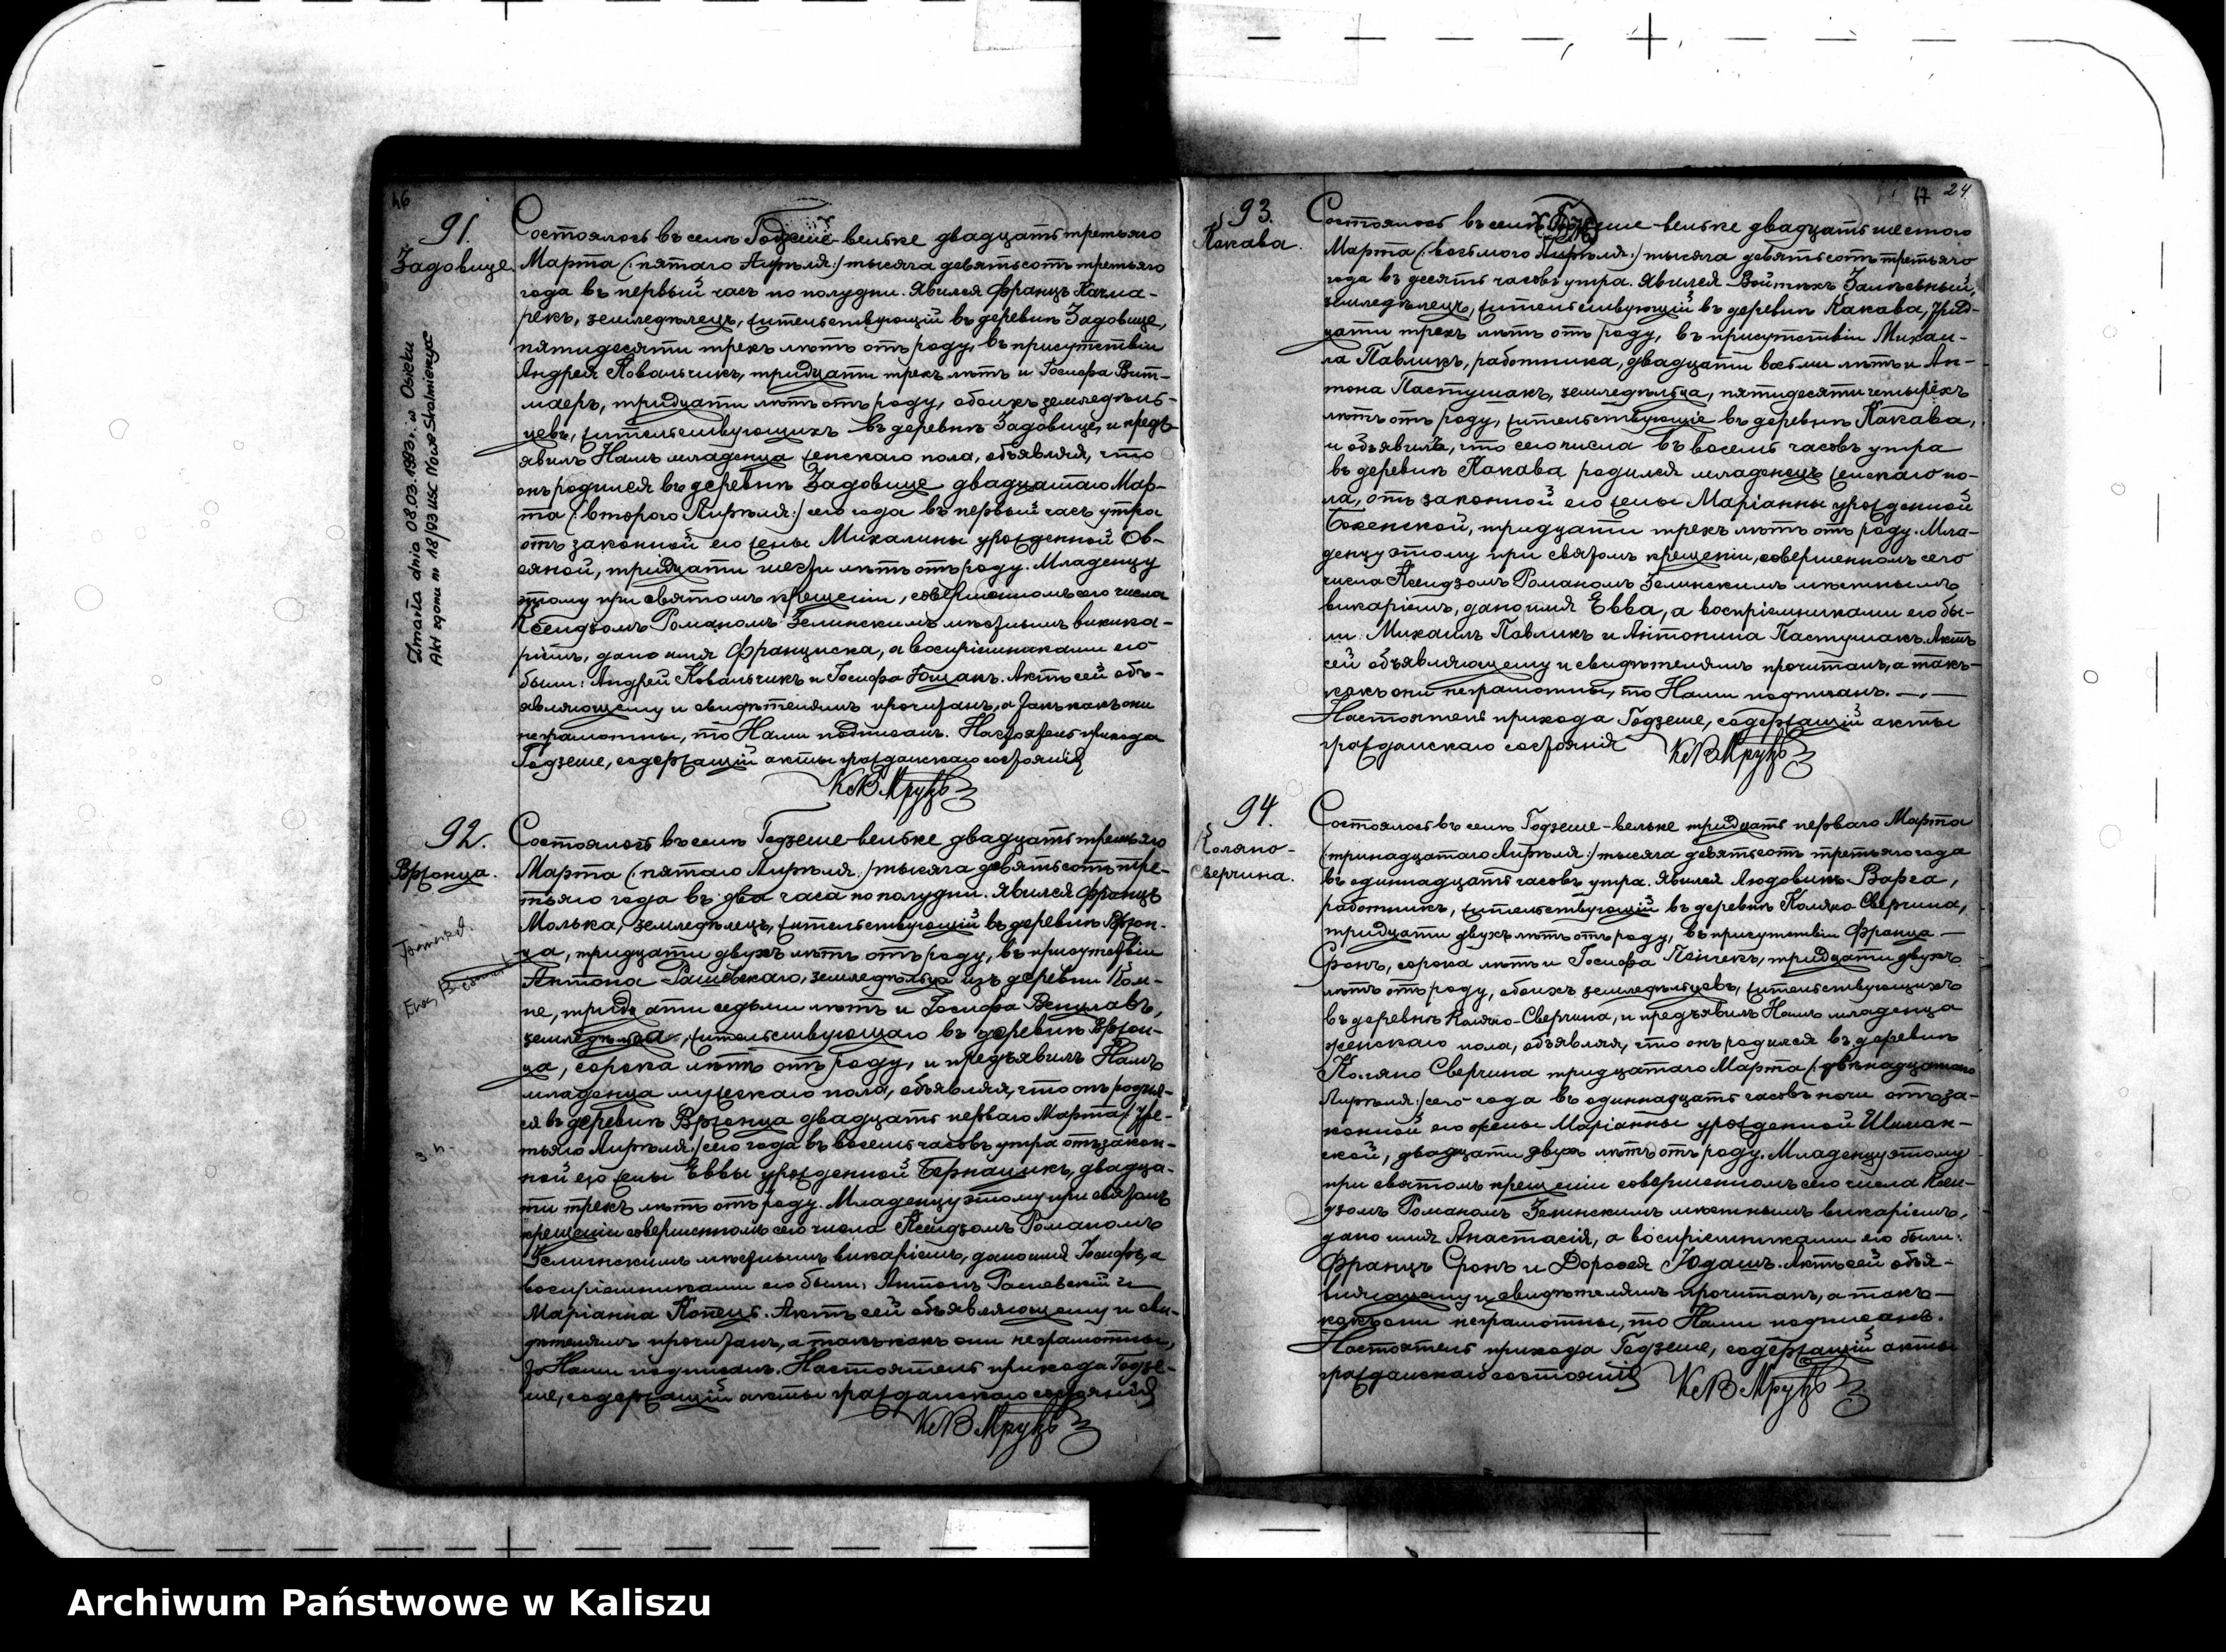 46
91.
Задовице.
Zmarła dnia 08.03.1993 r. w Osieku
Akt zgonu nr 18/93 USC Nowe Skalmierzyce
Состоялось въ селѣ Годзеше-вельке двадцать третьяго
Марта (:пятаго Апрѣля:) тысяча девятьсотъ третьяго
года въ первый часъ по полудни. Явился Францъ Качма-
рекъ, земледѣлецъ, жительствующій въ деревнѣ Задовице,
пятидесяти трехъ лѣтъ отъ роду, въ присутствіи
Андрея Ковальчикъ, тридцати трехъ лѣтъ и Іосифа Вит-
маеръ, тридцати лѣтъ отъ роду, обоихъ земледѣль-
цевъ, жительствующихъ въ деревнѣ Задовице, и предъ-
явилъ Намъ младенца женскаго пола, объявляя, что
онъ родился въ деревнѣ Задовице двадцатаго Мар-
та (:второго Апрѣля:) сего года въ первый часъ утра
отъ законной его жены Михалины урожденной Ов-
сяной, тридцати шести лѣтъ отъ роду. Младенцу
этому при святомъ крещеніи, совершенномъ сего числа
Ксендзомъ Романомъ Зелинскимъ мѣстнымъ викика-
ріемъ, дано имя Франциска, а воспріемниками его
были: Андрей Ковальчикъ и Іосифа Югшакъ. Актъ сей объ-
являющему и свидѣтелямъ прочитанъ, а такъ какъ они
неграмотны, то Нами подписанъ. Настоятель прихода
Годзеше, содержащій акты гражданскаго состоянія
КсВМруцъ
92.
Вржонца.
Состоялось въ селѣ Годзеше-вельке двадцать третьяго
Марта (:пятаго Апрѣля:) тысяча девятьсотъ тре-
тьяго года въ два часа по полудни. Явился Францъ
Молька, земледѣлецъ, жительствующій въ деревнѣ Вржон-
ца, тридцати двухъ лѣтъ отъ роду, въ присутствіи
Антона Рашевскаго, земледѣльца изъ деревни Коп-
не, тридцати седьми лѣтъ и Іосифа Венцлавъ,
земледѣльца, жительствующаго въ деревнѣ Вржон-
ца, сорока лѣтъ отъ роду, и предъявилъ Намъ
младенца мужескаго пола, объявляя, что онъ родил-
ся въ деревнѣ Вржонца двадцать перваго Марта (:тре-
тьяго Апрѣля:) сего года въ восемь часовъ утра отъ закон-
ной его жены Еввы урожденной Бернацикъ, двадца-
ти трехъ лѣтъ отъ роду. Младенцу этому при святомъ
крещеніи совершенномъ сего числа Ксендзомъ Романомъ
Зелинскимъ мѣстнымъ викаріемъ, дано имя Іосифъ, а
воспріемниками его были: Антонъ Рашевскій и
Маріанна Копець. Актъ сей объявляющему и сви-
дѣтелямъ прочитанъ, а такъ какъ они неграмотны,
то Нами подписанъ. Настоятель прихода Годзе-
ше, содержащій акты гражданскаго состоянія
КсВМруцъ
47 24
93.
Какава.
Состоялось въ селѣ Годзеше-вельке двадцать шестого
Марта (:восьмого Апрѣля:) тысяча девятьсотъ третьяго
года въ десять часовъ утра. Явился Войтѣхъ Залѣсный,
земледѣлецъ, жительствующій въ деревнѣ Какава, трид-
цати трехъ лѣтъ отъ роду, въ присутствіи Михаи-
ла Павликъ, работника, двадцати восьми лѣтъ и Ан-
тона Пастушакъ, земледѣльца, пятидесяти четырехъ
лѣтъ отъ роду, жительствующіе въ деревнѣ Какава,
и объявилъ, что сего числа въ восемь часовъ утра
въ деревнѣ Какава родился младенецъ женскаго по-
ла, отъ законной его жены Маріанны урожденной
Боженской, тридцати трехъ лѣтъ отъ роду. Мла-
денцу этому при святомъ крещеніи, совершенномъ сего
числа Ксендзомъ Романомъ Зелинскимъ мѣстнымъ
викаріемъ, дано имя Евва, а воспріемниками его бы-
ли: Михаилъ Павликъ и Антонина Пастушакъ. Актъ
сей объявляющему и свидѣтелямъ прочитанъ, а такъ-
какъ они неграмотны, то Нами подписанъ. —
Настоятель прихода Годзеше, содержащій акты
гражданскаго состоянія КсВМруцъ
94.
Коляно-
Сверчина.
Состоялось въ селѣ Годзеше-вельке тридцать перваго Марта
(:тринадцатаго Апрѣля:) тысяча девятьсотъ третьяго года
въ одиннадцать часовъ утра. Явился Людовикъ Варга,
работникъ, жительствующій въ деревнѣ Коляно Сверчина,
тридцати двухъ лѣтъ отъ роду, въ присутствіи Франца —
Сронъ, сорока лѣтъ и Іосифа Пентекъ, тридцати двухъ
лѣтъ отъ роду, обоихъ земледѣльцевъ, жительствующихъ
въ деревнѣ Коляно-Сверчина, и предъявилъ Намъ младенца
женскаго пола, объявляя, что онъ родился въ деревнѣ
Коляно Сверчина тридцатаго Марта (:двѣнадцатаго
Апрѣля:) сего года въ одиннадцать часовъ ночи отъ за-
конной его жены Маріанны урожденной Шиман-
ской, двадцати двухъ лѣтъ отъ роду. Младенцу этому
при святомъ крещеніи совершенномъ сего числа Ксен-
дзомъ Романомъ Зелинскимъ мѣстнымъ викаріемъ,
дано имя Анастасія, а воспріемниками его были:
Францъ Сронъ и Дорофея Югдашъ. Актъ сей объя-
вляющему и свидѣтелямъ прочитанъ, а такъ-
какъ они неграмотны, то Нами подписанъ.
Настоятель прихода Годзеше, содержащій акты
гражданскаго состоянія КсВМруцъ
Archiwum Państwowe w Kaliszu